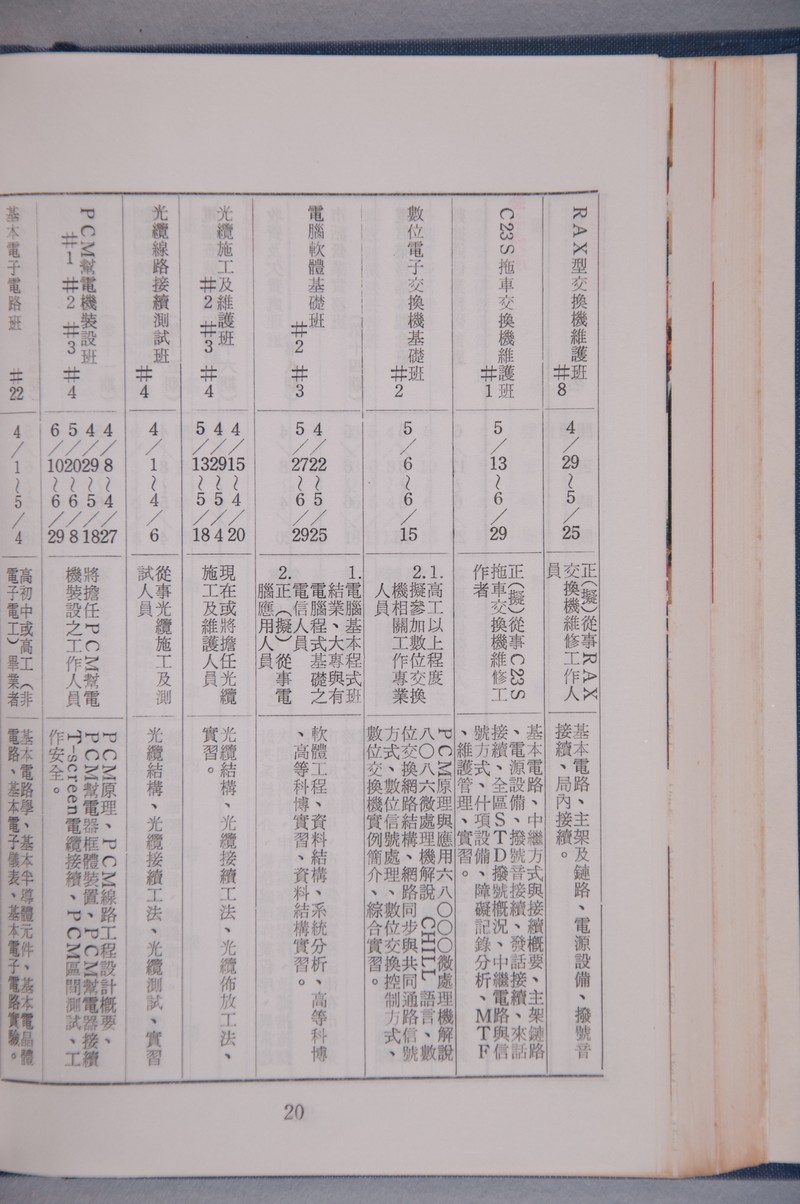 RAX型交換機維護班
#8
4/29~5/25
正(擬)從事RAX
交換機維修工作人
員
基本電路、主架及鏈路、電源設備、撥號音
接續、局內接續。
C23S拖車交換機維護班
#1
5/13~6/29
正(擬)從事C23S
拖車交換機維修工
作者
基本電路、中繼方式與接續概要、主架鏈路
、電源設備、撥號音接續、發話接續、來話
接續、全區STD撥號概況、中繼電路與信
號方式、什項設備、障礙記錄分析、MTF
、維護管理、實習。
數位電子交換機基礎班
#2
5/6~6/15
1.高工以上程度
2.擬參加數位交換
機相關工作專業
人員
PCM原理與應用六八〇〇〇微處理機解說
八〇八六微處理機解說 CHILL 語言、數
位交換網路結構、網路同步與共同通路信號
方式、數位信號處理、數位交換控制方式、
數位交換機實例簡介、綜合實習。
電腦軟體基礎班
#2 #3
4/22~5/25
5/27~6/29
1.電腦基本程式班
結業、大專與有
電腦程式基礎之
電信人員
2.正(擬)從事電
腦應用人員
軟體工程、資料結構、系統分析、高等科博
、高等科博實習、資料結構實習。
光纜施工及維護班
#2 #3 #4
4/15~4/20
4/29~5/4
5/13~5/18
現在或將擔任光纜
施工及維護人員
光纜結構、光纜接續工法、光纜佈放工法、
實習。
光纜線路接續測試班
#4
4/1~4/6
從事光纜施工及測
試人員
光纜結構、光纜接續工法、光纜測試、實習
PCM幫電機裝設班
#1 #2 #3 #4
4/8~4/27
4/29~5/18
5/20~6/8
6/10~6/29
將擔任PCM幫電
機裝設之工作人員
PCM原理、PCM線路工程設計概要、
PCM幫電器框體裝置、PCM幫電器接續
T-screen電纜接續、PCM區間測試、工
作安全。
基本電子電路班 #22
4/1~5/4
高初中或高工(非
電子電工)畢業者
基本電路學、基本半導體元件、基本電晶體
電路、基本電子儀表、基本電子電路實驗。
20